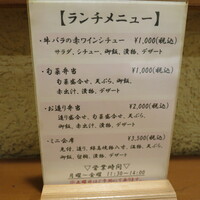 【ランチメニュー】
・牛バラの赤ワインシチュー ¥1,000(税込)
サラダ、シチュー、御飯、漬物、デザート
・旬菜弁当 ¥1,000(税込)
旬菜盛合せ、天ぷら、御飯、
赤出汁、漬物、デザート
・お造り弁当 ¥2,000(税込)
造り盛合せ、旬菜盛合せ、天ぷら、
御飯、赤出汁、漬物、デザート
・ミニ会席 ¥3,500(税込)
先付、造り、焼物、天ぷら、
御飯、留椀、漬物、デザート
♡営業時間♡
月曜~金曜 11:30~14:00